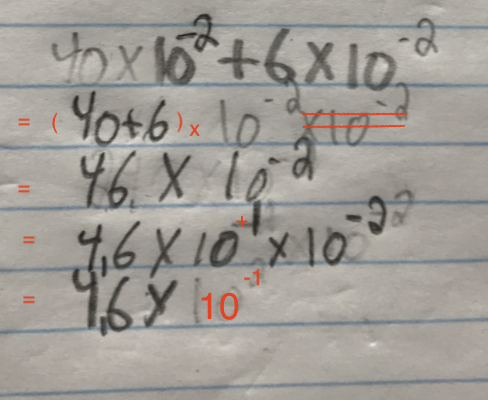 40 × 10⁻² + 6 × 10⁻²
= (40+6) × 10⁻² × 10⁻²
= 46. × 10⁻²
= 4,6 × 10⁺¹ × 10⁻²
= 4,6 × 10⁻¹